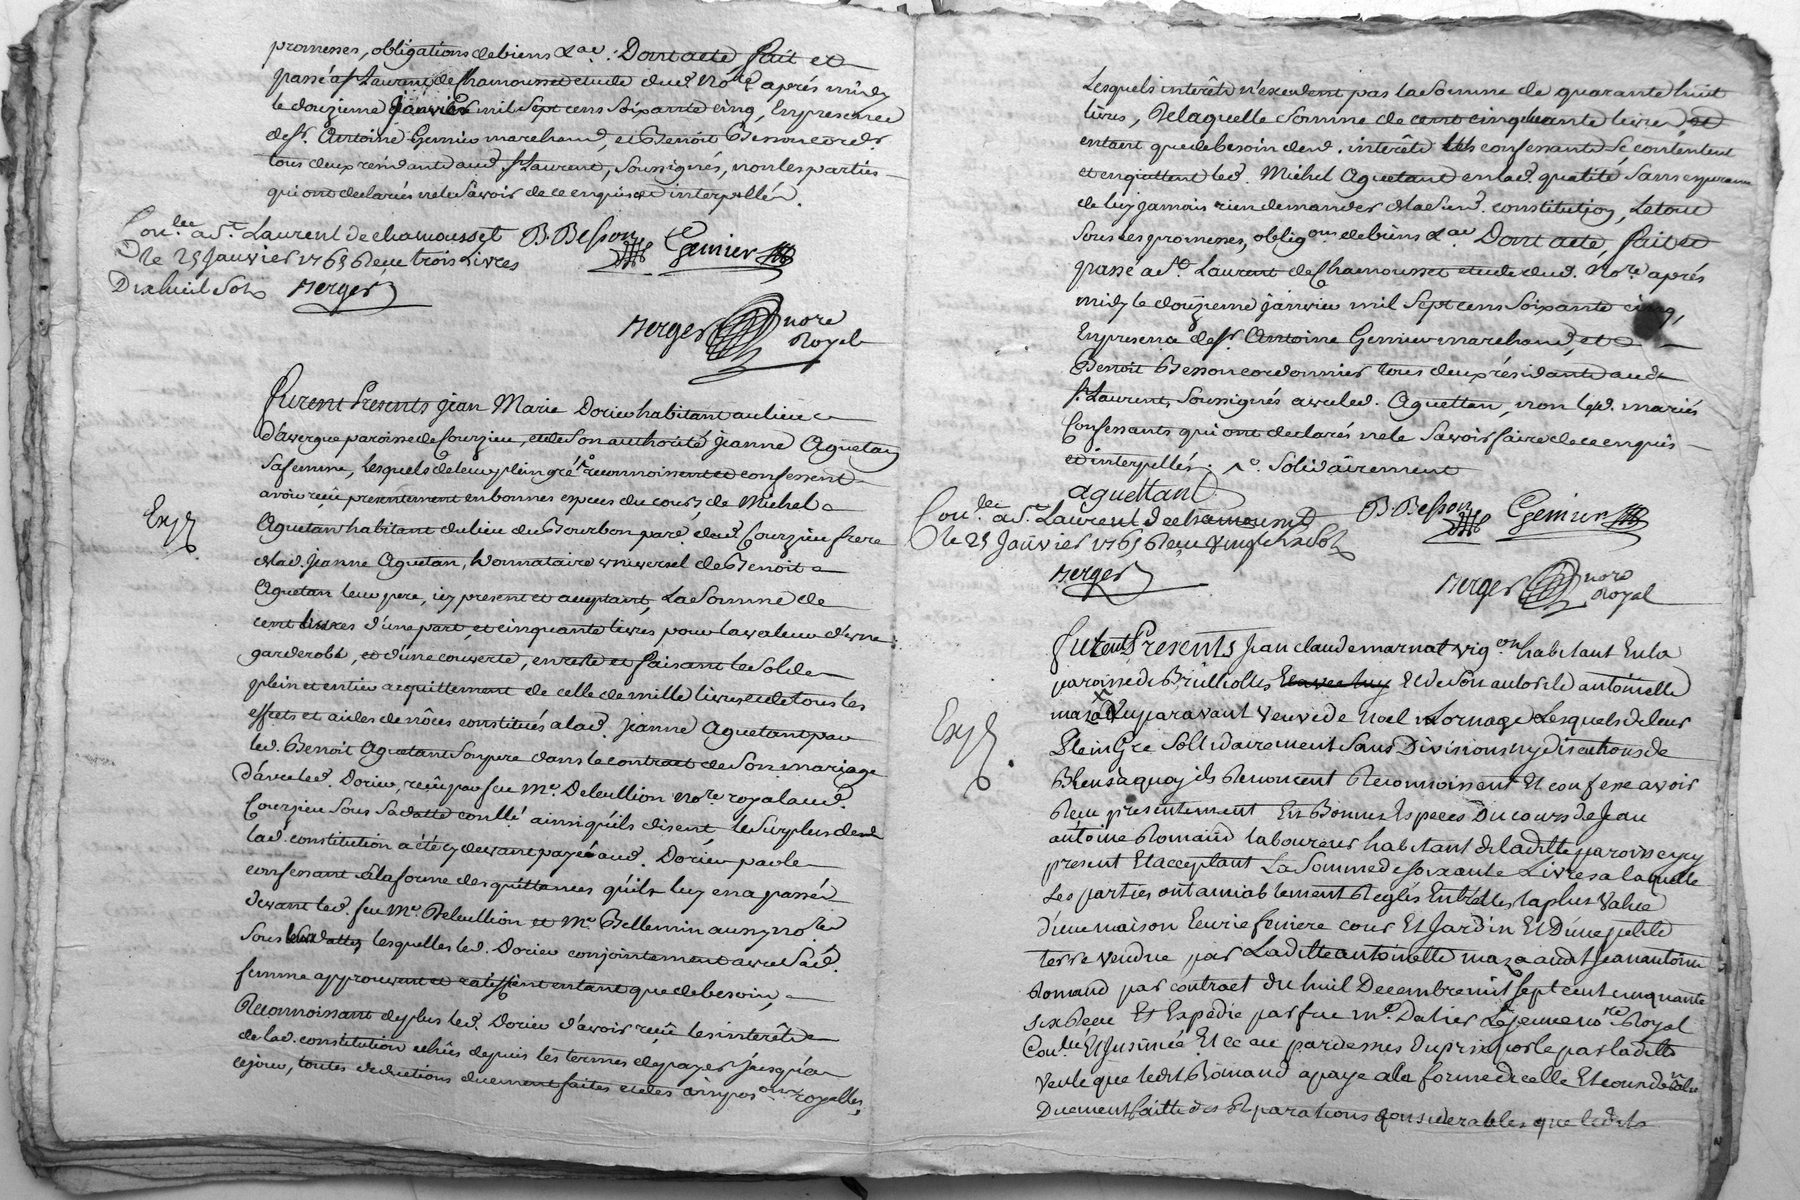 promesses, obligations de biens &ae. Dont acte, fait et
passé a St Laurent de Chamousset etude dud. Nore après midy
le douzieme janvier mil sept cens soixante cinq, En presence
de Sr. Antoine Genier marchand, et Benoit Besson cordr.
tous deux residants aud. St Laurent, soussignés, non les parties
qui ont declarés ne le savoir de ce enquis et interpellés.
Conlée a St. Laurent de chamousset B. Besson Genier
le 25 Janvier 1765 Reçu trois Livres
Dixhuit Sols Berger
Berger nore Royal
Furent Presents Jean Marie Dorieu habitant au lieu
d'avergue paroisse de Courzieu, et de son authorité Jeanne Aguetan
sa femme, Lesquels de leur plein gré reconnoissent et confessent
avoir reçû presentement en bonnes especes du cours de Michel
Aguetan habitant du lieu du Bourbon pare. dud. Courzieu frere
de lad. Jeanne Aguetan, donnataire universel de Benoit
Aguetan leur pere, icy present et acceptant, La Somme de
cent livres d'une part, et cinquante livres pour la valeur d'une
garderobe, et d'une couverte, en reste et faisant le solde
plein et entier acquittement de celle de mille livres et de tous les
effets et aides de nôces constitués a lad. Jeanne Aguetant par
led. Benoit Aguetant son pere dans le contract de son mariage
d'avec led. Dorieu, reçû par feu Me. Deleullion Nore royal aud.
Courzieu sous sa datte conllé ainsi qu'ils disent, le surplus de
lad. constitution a été cy devant payé aud. Dorieu par le
confessant a la forme des quittances qu'ils luy en a passés
devant led. feu Me. Deleullion et Me. Bellemin aussy nore
sous leurs dattes, lesquelles led. Dorieu conjointement avec sad.
femme approuvent et ratiffient entant que de besoin,
Reconnoissant de plus led. Dorieu d'avoir reçû les interêts
de lad. constitution echûs depuis les termes de payer jusqu'a
ce jour, toutes deductions duement faites et des imposons royalles,
Exp
Lesquels interêts n'excedent pas la somme de quarante huit
livres, De laquelle somme de cent cinquante livres, et
entant que de besoin desd. interêts les confessants se contentent
et en quittent led. Michel Aguetant en lad. qualité sans esperance
de luy jamais rien demander de lad. constitution, Le tout
sous les promesses, obligons de biens &ae Dont acte, fait et
passé a St. Laurent de Chamousset etude dud. Nore après
midy le douzieme janvier mil sept cens soixante cinq,
En presence de Sr. Antoine Genier marchand, et
Benoit Besson cordonnier tous deux résidants aud.
St. Laurent, soussignés avec led. Aguettan, non lesd. mariés
Confessants qui ont declarés ne le savoir faire de ce enquis
et interpellés. solidairement
aguettant B. Besson Genier
Conlée a St. Laurent de chamousset
le 25 Janvier 1765 Reçu vingt six sols
Berger Berger nore Royal
Furent Presents Jean claude marnat vigon habitant En la
paroisse de Brullioles Et de son autorité antoinette
maza auparavant veuve de noel Lornage Lesquels de leur
Plein Gré Solidairement Sans Division ny discutions de
Biens a quoy ils Renoncent Reconnoissent Et confesse avoir
Reçu presentement En Bonnes Especes Du cours de Jean
antoine Romand laboureur habitant de laditte paroisse icy
present Et acceptant La Somme de soixante Livres a laquelle
Les parties ont amiablement Reglés Entrelles la plus value
d'une maison Ecurie feniere cour Et Jardin Et D'une petite
terre vendue par Laditte antoinette maza audit jean antoine
Romand par contract du huit Decembre mil sept cent cinquante
six Reçu Et Expédie par feu me. Dalier Le jeune nore Royal
Conlé Et Jusinué Et ce au pardessus du prix porte par laditte
vente que ledit Romand a paye a la forme dicelle Et consideration
Duement faitte des Reparations considerables que ledit
Exp